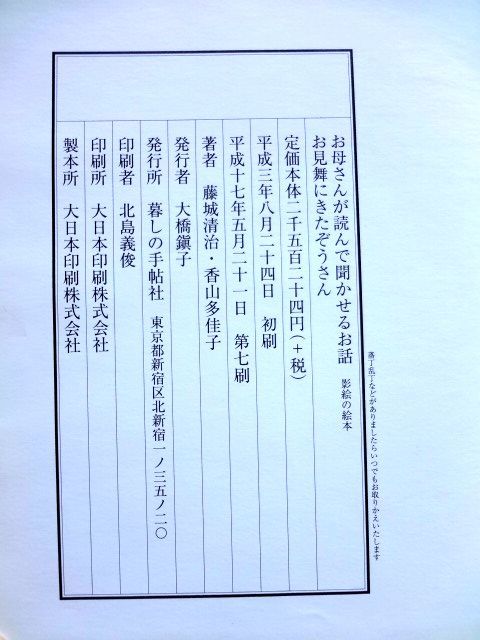 落丁乱丁などがありましたらいつでもお取りかえいたします
お母さんが読んで聞かせるお話 影絵の絵本
お見舞にきたぞうさん
定価本体二千五百二十四円(+税)
平成三年八月二十四日 初刷
平成十七年五月二十一日 第七刷
著者 藤城清治・香山多佳子
発行者 大橋鎭子
発行所 暮しの手帖社 東京都新宿区北新宿一ノ三五ノ二〇
印刷者 北島義俊
印刷所 大日本印刷株式会社
製本所 大日本印刷株式会社